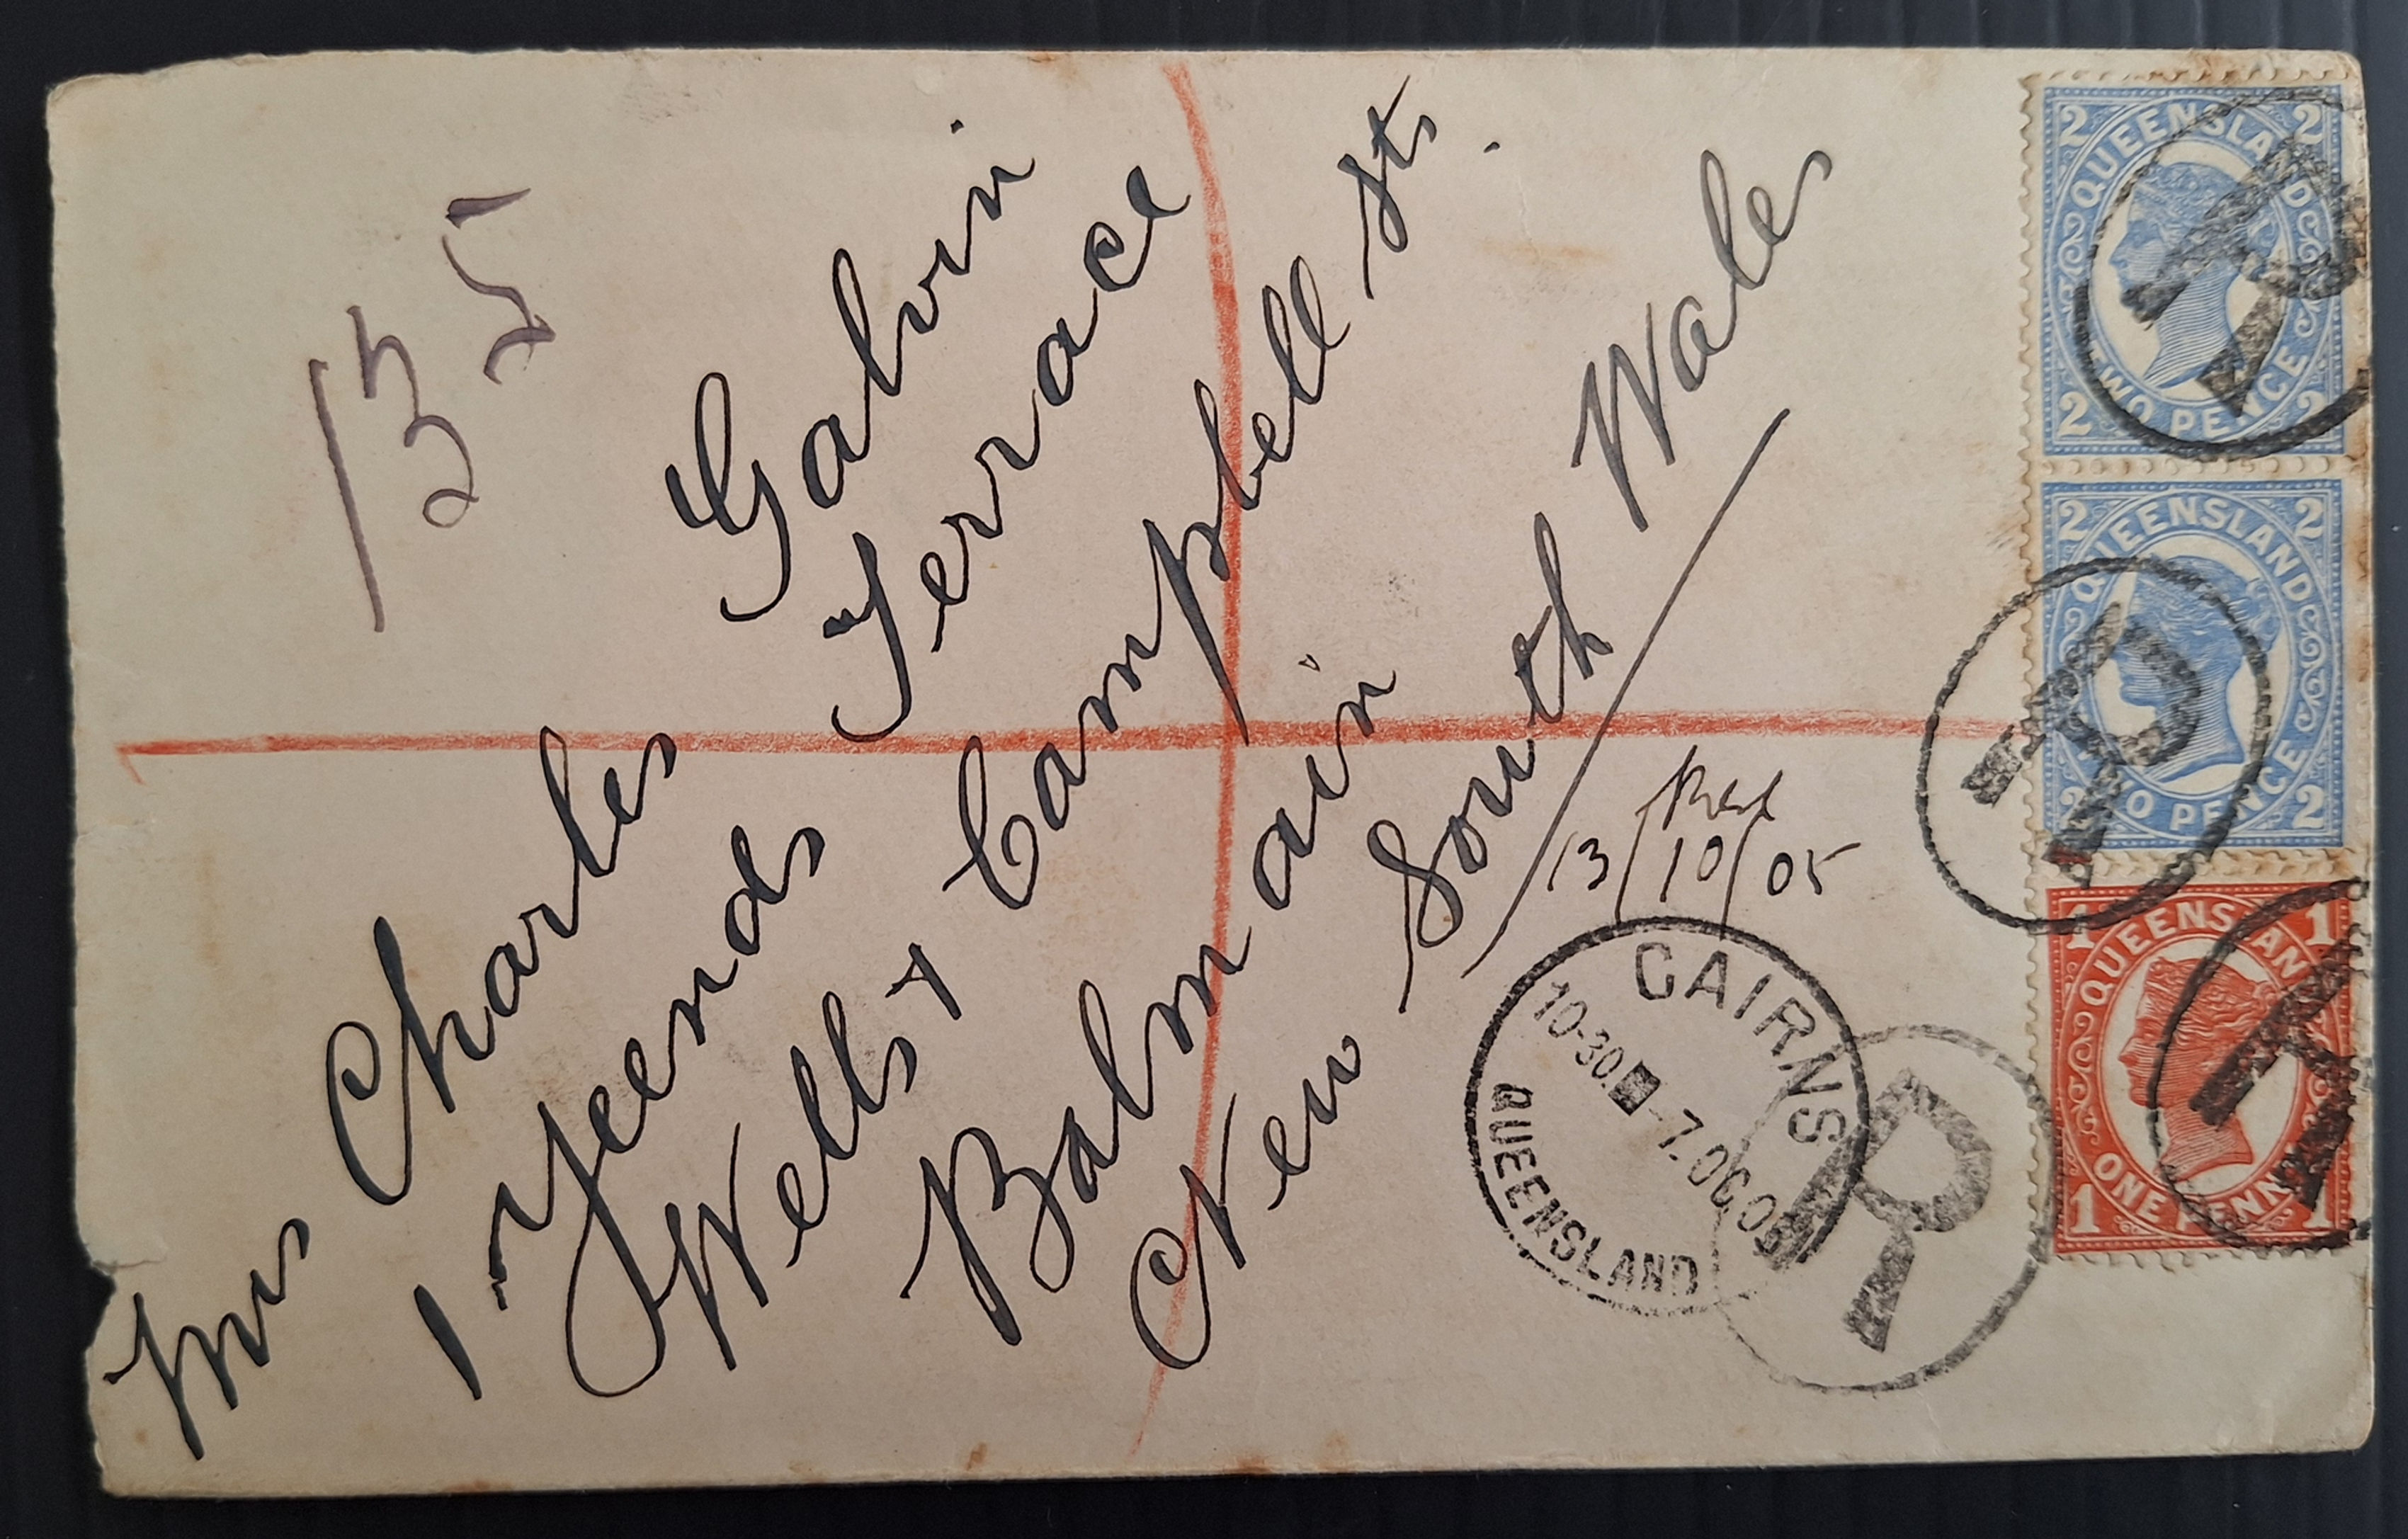 135
Mrs Charles Galvin
1 Yeends Terrace
Wells & Campbell Sts.
Balmain
New South Wales
13/10/05
CAIRNS
10-30 -7.OC.05
QUEENSLAND
R
2 QUEENSLAND 2
2 TWO PENCE 2
R
2 QUEENSLAND 2
2 TWO PENCE 2
R
1 QUEENSLAND 1
1 ONE PENNY 1
R